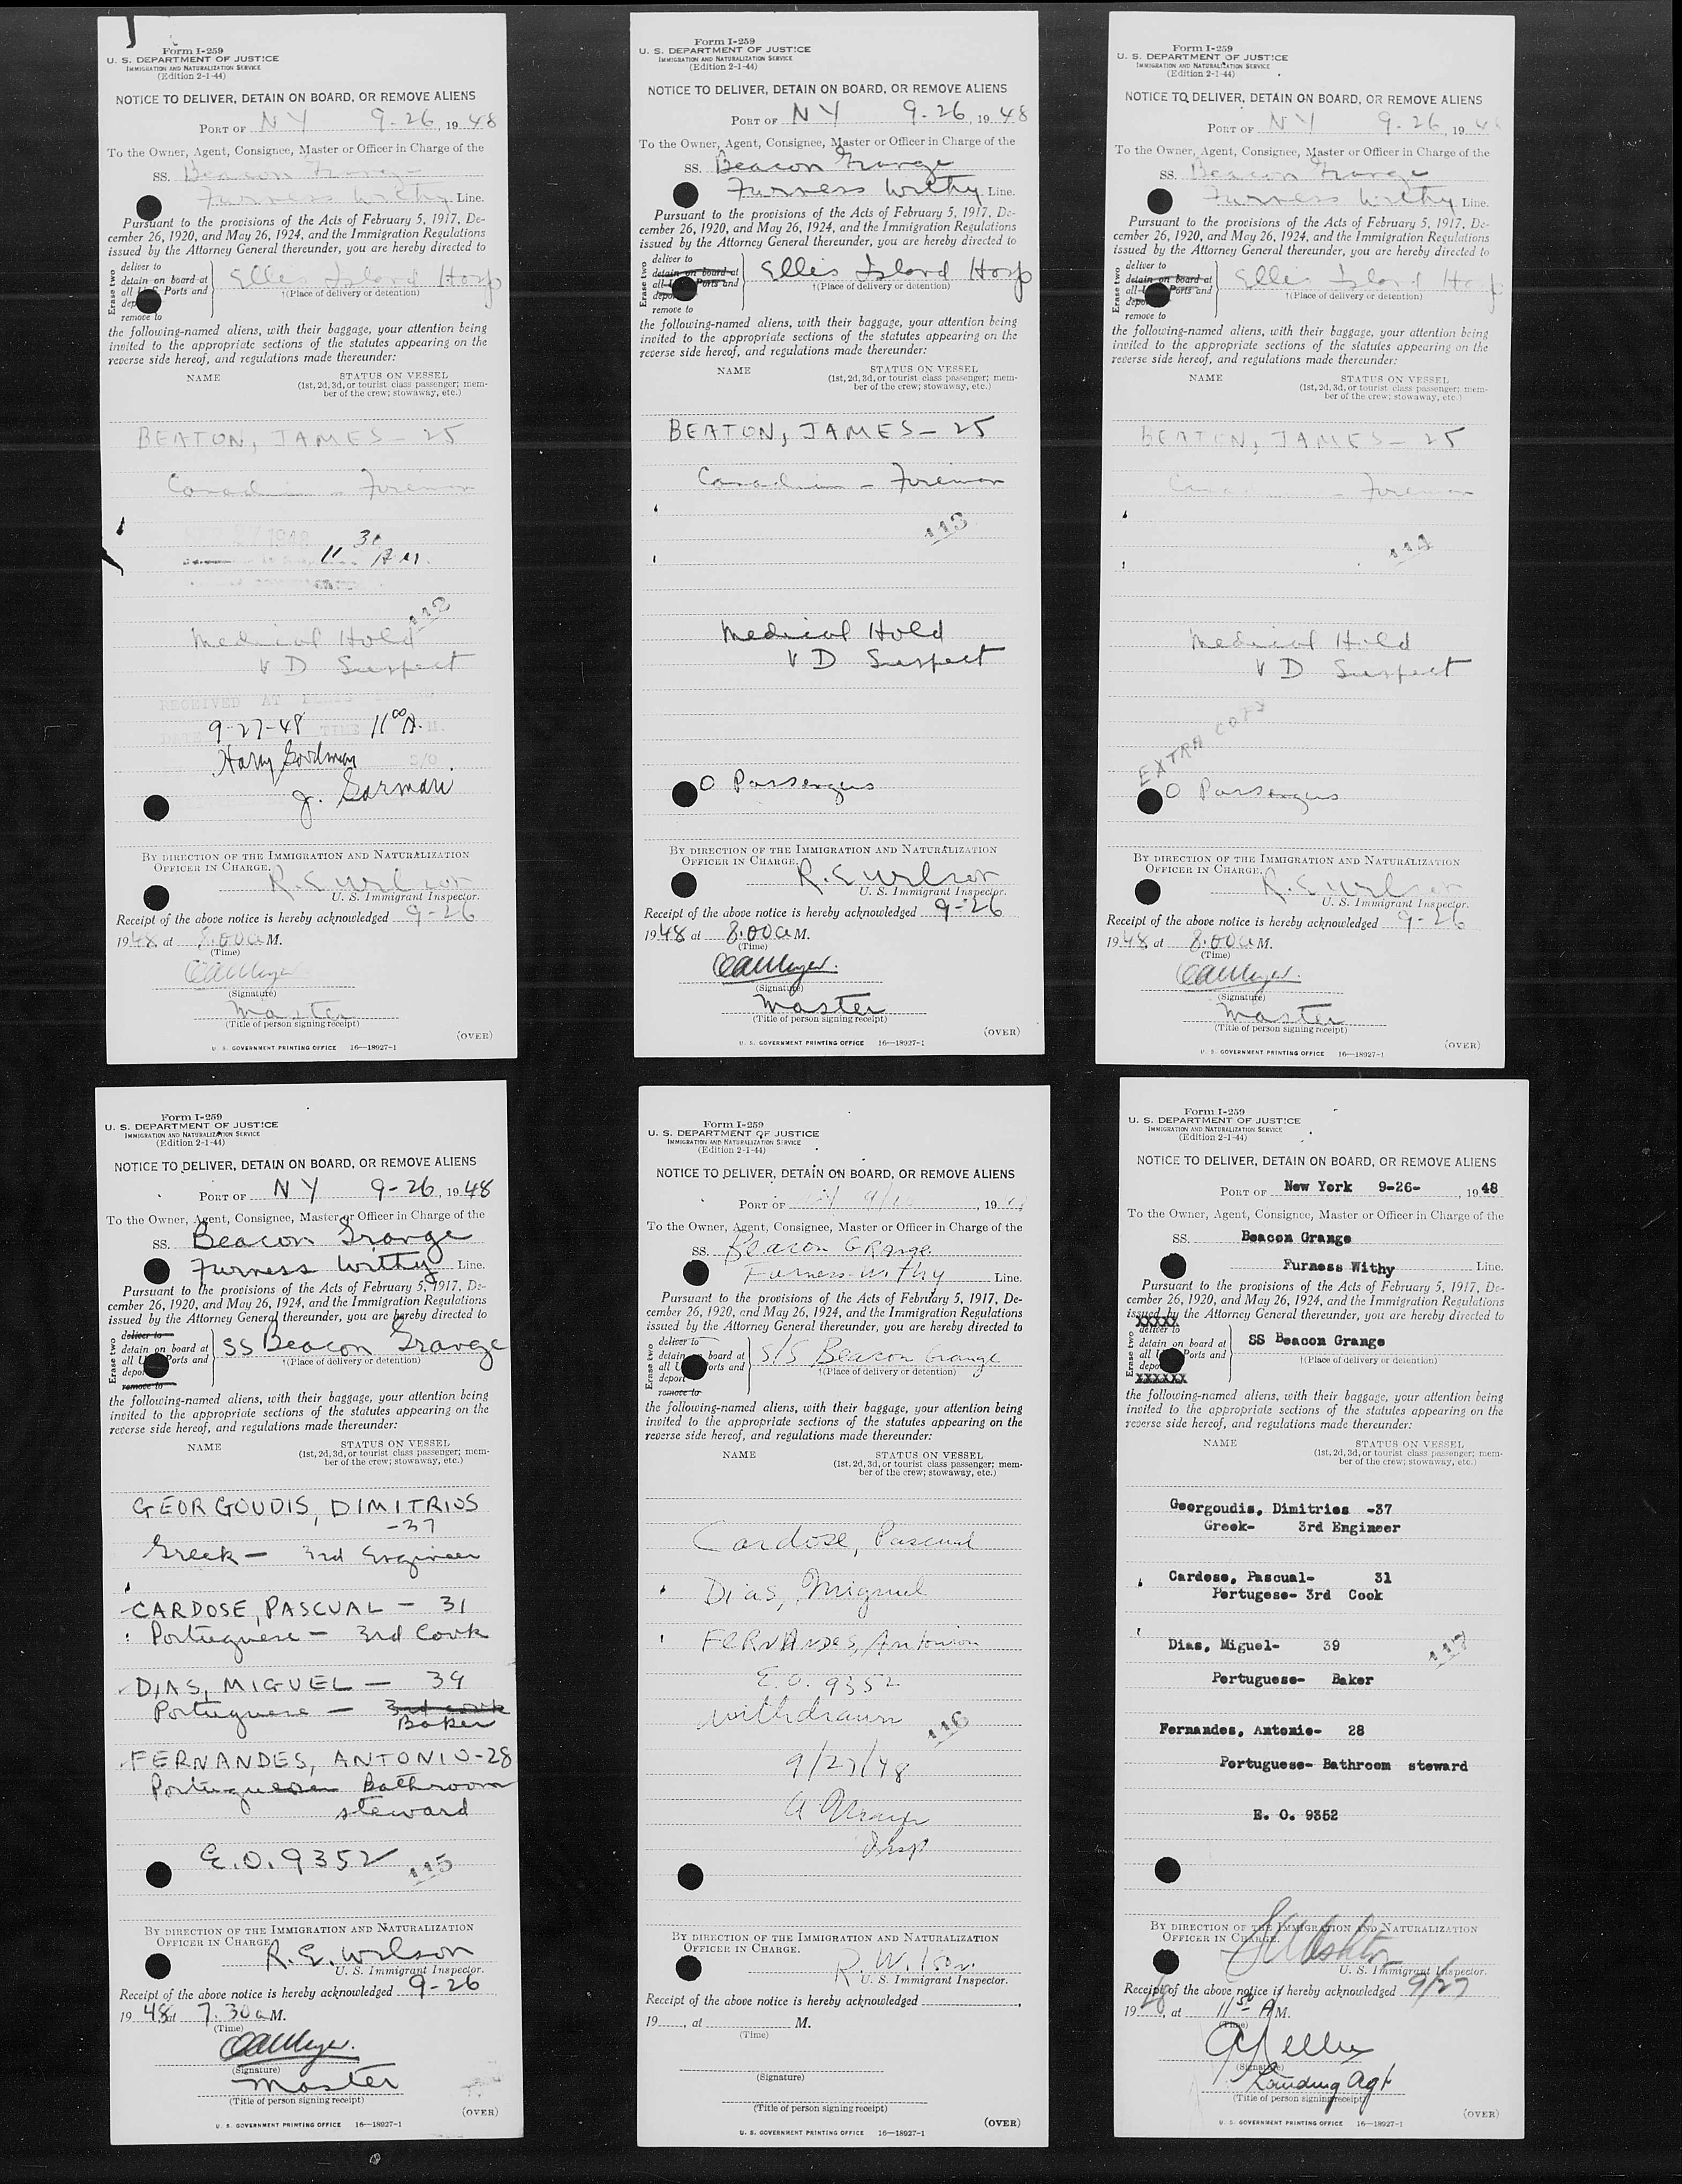 Form I-259
U. S. DEPARTMENT OF JUSTICE
IMMIGRATION AND NATURALIZATION SERVICE
(Edition 2-1-44)
NOTICE TO DELIVER, DETAIN ON BOARD, OR REMOVE ALIENS
PORT OF NY 9-26, 1948
To the Owner, Agent, Consignee, Master or Officer in Charge of the
SS. Beacon Grange
Furness Withy Line.
Pursuant to the provisions of the Acts of February 5, 1917, De-
cember 26, 1920, and May 26, 1924, and the Immigration Regulations
issued by the Attorney General thereunder, you are hereby directed to
Erase two
deliver to
detain on board at
all U. S. Ports and
deport
remove to
Ellis Island Hosp
†(Place of delivery or detention)
the following-named aliens, with their baggage, your attention being
invited to the appropriate sections of the statutes appearing on the
reverse side hereof, and regulations made thereunder:
NAME STATUS ON VESSEL
(1st, 2d, 3d, or tourist class passenger; mem-
ber of the crew; stowaway, etc.)
BEATON, JAMES - 25
Canadian - Fireman
1948
11 30 AM.
112
Medical Hold
VD Suspect
RECEIVED AT ELLIS
DATE 9-27-48 TIME 11 00 A. M.
Harry Goodman
J. Garman
BY DIRECTION OF THE IMMIGRATION AND NATURALIZATION
OFFICER IN CHARGE.
R. E. Wilson
U. S. Immigrant Inspector.
Receipt of the above notice is hereby acknowledged 9-26
1948 at 8.00 a M.
(Time)
(Signature)
Master
(Title of person signing receipt)
(OVER)
U. S. GOVERNMENT PRINTING OFFICE 16—18927-1
Form I-259
U. S. DEPARTMENT OF JUSTICE
IMMIGRATION AND NATURALIZATION SERVICE
(Edition 2-1-44)
NOTICE TO DELIVER, DETAIN ON BOARD, OR REMOVE ALIENS
PORT OF NY 9-26, 1948
To the Owner, Agent, Consignee, Master or Officer in Charge of the
SS. Beacon Grange
Furness Withy Line.
Pursuant to the provisions of the Acts of February 5, 1917, De-
cember 26, 1920, and May 26, 1924, and the Immigration Regulations
issued by the Attorney General thereunder, you are hereby directed to
Erase two
deliver to
detain on board at
all U. S. Ports and
deport
remove to
Ellis Island Hosp
†(Place of delivery or detention)
the following-named aliens, with their baggage, your attention being
invited to the appropriate sections of the statutes appearing on the
reverse side hereof, and regulations made thereunder:
NAME STATUS ON VESSEL
(1st, 2d, 3d, or tourist class passenger; mem-
ber of the crew; stowaway, etc.)
BEATON, JAMES - 25
Canadian - Fireman
113
Medical Hold
VD Suspect
0 Passengers
BY DIRECTION OF THE IMMIGRATION AND NATURALIZATION
OFFICER IN CHARGE.
R. E. Wilson
U. S. Immigrant Inspector.
Receipt of the above notice is hereby acknowledged 9-26
1948 at 8.00 a M.
(Time)
(Signature)
Master
(Title of person signing receipt)
(OVER)
U. S. GOVERNMENT PRINTING OFFICE 16—18927-1
Form I-259
U. S. DEPARTMENT OF JUSTICE
IMMIGRATION AND NATURALIZATION SERVICE
(Edition 2-1-44)
NOTICE TO DELIVER, DETAIN ON BOARD, OR REMOVE ALIENS
PORT OF NY 9-26, 194
To the Owner, Agent, Consignee, Master or Officer in Charge of the
SS. Beacon Grange
Furness Withy Line.
Pursuant to the provisions of the Acts of February 5, 1917, De-
cember 26, 1920, and May 26, 1924, and the Immigration Regulations
issued by the Attorney General thereunder, you are hereby directed to
Erase two
deliver to
detain on board at
all U. S. Ports and
deport
remove to
Ellis Island Hosp
†(Place of delivery or detention)
the following-named aliens, with their baggage, your attention being
invited to the appropriate sections of the statutes appearing on the
reverse side hereof, and regulations made thereunder:
NAME STATUS ON VESSEL
(1st, 2d, 3d, or tourist class passenger; mem-
ber of the crew; stowaway, etc.)
BEATON, JAMES - 25
Canadian - Fireman
114
Medical Hold
VD Suspect
EXTRA COPY
0 Passengers
BY DIRECTION OF THE IMMIGRATION AND NATURALIZATION
OFFICER IN CHARGE.
R. E. Wilson
U. S. Immigrant Inspector.
Receipt of the above notice is hereby acknowledged 9-26
1948 at 8.00 a M.
(Time)
(Signature)
Master
(Title of person signing receipt)
(OVER)
U. S. GOVERNMENT PRINTING OFFICE 16—18927-1
Form I-259
U. S. DEPARTMENT OF JUSTICE
IMMIGRATION AND NATURALIZATION SERVICE
(Edition 2-1-44)
NOTICE TO DELIVER, DETAIN ON BOARD, OR REMOVE ALIENS
PORT OF NY 9-26, 1948
To the Owner, Agent, Consignee, Master or Officer in Charge of the
SS. Beacon Grange
Furness Withy Line.
Pursuant to the provisions of the Acts of February 5, 1917, De-
cember 26, 1920, and May 26, 1924, and the Immigration Regulations
issued by the Attorney General thereunder, you are hereby directed to
Erase two
deliver to
detain on board at
all U. S. Ports and
deport
remove to
SS Beacon Grange
†(Place of delivery or detention)
the following-named aliens, with their baggage, your attention being
invited to the appropriate sections of the statutes appearing on the
reverse side hereof, and regulations made thereunder:
NAME STATUS ON VESSEL
(1st, 2d, 3d, or tourist class passenger; mem-
ber of the crew; stowaway, etc.)
GEORGOUDIS, DIMITRIOS
-37
Greek - 3rd Engineer
CARDOSE, PASCUAL - 31
Portuguese - 3rd Cook
DIAS, MIGUEL - 39
Portuguese - 3rd cook
Baker
FERNANDES, ANTONIO-28
Portuguese Bathroom
steward
E.O. 9352
115
BY DIRECTION OF THE IMMIGRATION AND NATURALIZATION
OFFICER IN CHARGE.
R. E. Wilson
U. S. Immigrant Inspector.
Receipt of the above notice is hereby acknowledged 9-26
1948 at 7.30 a M.
(Time)
(Signature)
Master
(Title of person signing receipt)
(OVER)
U. S. GOVERNMENT PRINTING OFFICE 16—18927-1
Form I-259
U. S. DEPARTMENT OF JUSTICE
IMMIGRATION AND NATURALIZATION SERVICE
(Edition 2-1-44)
NOTICE TO DELIVER, DETAIN ON BOARD, OR REMOVE ALIENS
PORT OF NY , 19
To the Owner, Agent, Consignee, Master or Officer in Charge of the
SS. Beacon GRange
Furness-Withy Line.
Pursuant to the provisions of the Acts of February 5, 1917, De-
cember 26, 1920, and May 26, 1924, and the Immigration Regulations
issued by the Attorney General thereunder, you are hereby directed to
Erase two
deliver to
detain on board at
all U. S. Ports and
deport
remove to
S/S Beacon Grange
†(Place of delivery or detention)
the following-named aliens, with their baggage, your attention being
invited to the appropriate sections of the statutes appearing on the
reverse side hereof, and regulations made thereunder:
NAME STATUS ON VESSEL
(1st, 2d, 3d, or tourist class passenger; mem-
ber of the crew; stowaway, etc.)
Cardose, Pascual
Dias, Miguel
FERNANDES, Antonion
E.O. 9352
withdrawn
116
9/27/48
Insp
BY DIRECTION OF THE IMMIGRATION AND NATURALIZATION
OFFICER IN CHARGE.
R. Wilson
U. S. Immigrant Inspector.
Receipt of the above notice is hereby acknowledged
19 , at M.
(Time)
(Signature)
(Title of person signing receipt)
(OVER)
U. S. GOVERNMENT PRINTING OFFICE 16—18927-1
Form I-259
U. S. DEPARTMENT OF JUSTICE
IMMIGRATION AND NATURALIZATION SERVICE
(Edition 2-1-44)
NOTICE TO DELIVER, DETAIN ON BOARD, OR REMOVE ALIENS
PORT OF New York 9-26- , 1948
To the Owner, Agent, Consignee, Master or Officer in Charge of the
SS. Beacon Grange
Furness Withy Line.
Pursuant to the provisions of the Acts of February 5, 1917, De-
cember 26, 1920, and May 26, 1924, and the Immigration Regulations
issued by the Attorney General thereunder, you are hereby directed to
XXXXX
Erase two
deliver to
detain on board at
all U. S. Ports and
deport
XXXXXX
SS Beacon Grange
†(Place of delivery or detention)
the following-named aliens, with their baggage, your attention being
invited to the appropriate sections of the statutes appearing on the
reverse side hereof, and regulations made thereunder:
NAME STATUS ON VESSEL
(1st, 2d, 3d, or tourist class passenger; mem-
ber of the crew; stowaway, etc.)
Georgoudis, Dimitrios -37
Greek- 3rd Engineer
Cardose, Pascual- 31
Portugese- 3rd Cook
Dias, Miguel- 39
117
Portuguese- Baker
Fernandes, Antonio- 28
Portuguese- Bathroom steward
E. O. 9352
BY DIRECTION OF THE IMMIGRATION AND NATURALIZATION
OFFICER IN CHARGE.
U. S. Immigrant Inspector.
Receipt of the above notice is hereby acknowledged 9/27
1948, at 11 50 A M.
(Time)
(Signature)
Landing Agt
(Title of person signing receipt)
(OVER)
U. S. GOVERNMENT PRINTING OFFICE 16—18927-1